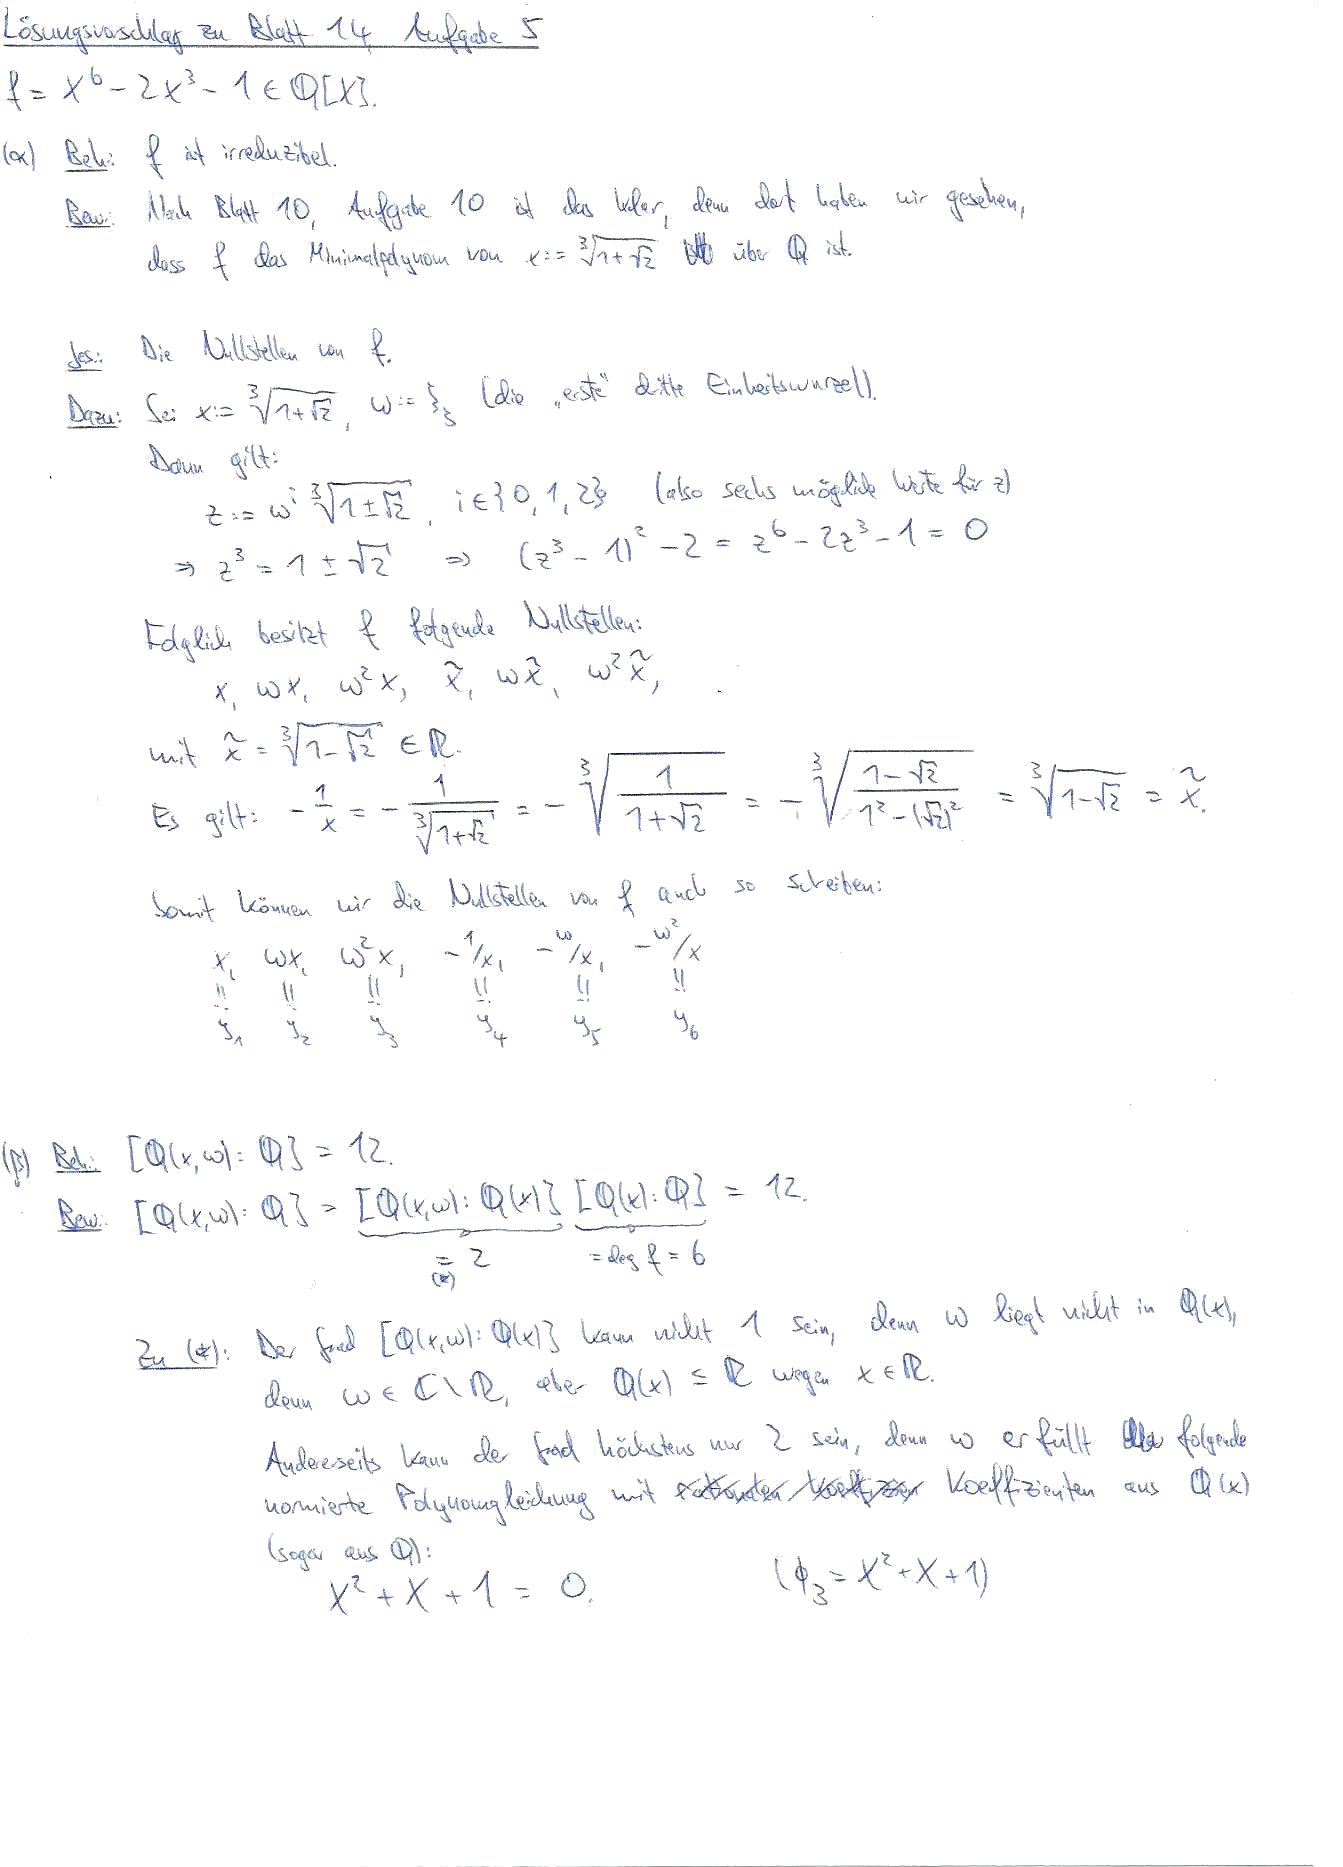 Lösungsvorschlag zu Blatt 14, Aufgabe 5
f = X⁶ - 2X³ - 1 ∈ ℚ[X].
(α) Beh.: f ist irreduzibel.
Bew.: Nach Blatt 10, Aufgabe 10 ist das klar, denn dort haben wir gesehen,
dass f das Minimalpolynom von x := ∛(1+√2) über ℚ ist.
Ges.: Die Nullstellen von f.
Dazu: Sei x := ∛(1+√2), ω := ξ₃ (die „erste“ dritte Einheitswurzel).
Dann gilt:
z := ωⁱ ∛(1±√2), i ∈ {0, 1, 2} (also sechs mögliche Werte für z)
⇒ z³ = 1 ± √2 ⇒ (z³ - 1)² - 2 = z⁶ - 2z³ - 1 = 0
Folglich besitzt f folgende Nullstellen:
x, ωx, ω²x, x̃, ωx̃, ω²x̃,
mit x̃ = ∛(1-√2) ∈ ℝ.
Es gilt: -1/x = -1/∛(1+√2) = -∛(1/(1+√2)) = -∛((1-√2)/(1²-(√2)²)) = ∛(1-√2) = x̃.
Somit können wir die Nullstellen von f auch so schreiben:
x, ωx, ω²x, -1/x, -ω/x, -ω²/x
=: =: =: =: =: =:
y₁ y₂ y₃ y₄ y₅ y₆
(β) Beh.: [ℚ(x,ω) : ℚ] = 12.
Bew.: [ℚ(x,ω) : ℚ] = [ℚ(x,ω) : ℚ(x)] [ℚ(x) : ℚ] = 12.
= 2 = deg f = 6
(*)
Zu (*): Der Grad [ℚ(x,ω) : ℚ(x)] kann nicht 1 sein, denn ω liegt nicht in ℚ(x),
denn ω ∈ ℂ \ ℝ, aber ℚ(x) ⊆ ℝ wegen x ∈ ℝ.
Andererseits kann der Grad höchstens nur 2 sein, denn ω erfüllt folgende
normierte Polynomgleichung mit Koeffizienten aus ℚ(x)
(sogar aus ℚ):
X² + X + 1 = 0. (Φ₃ = X² + X + 1)